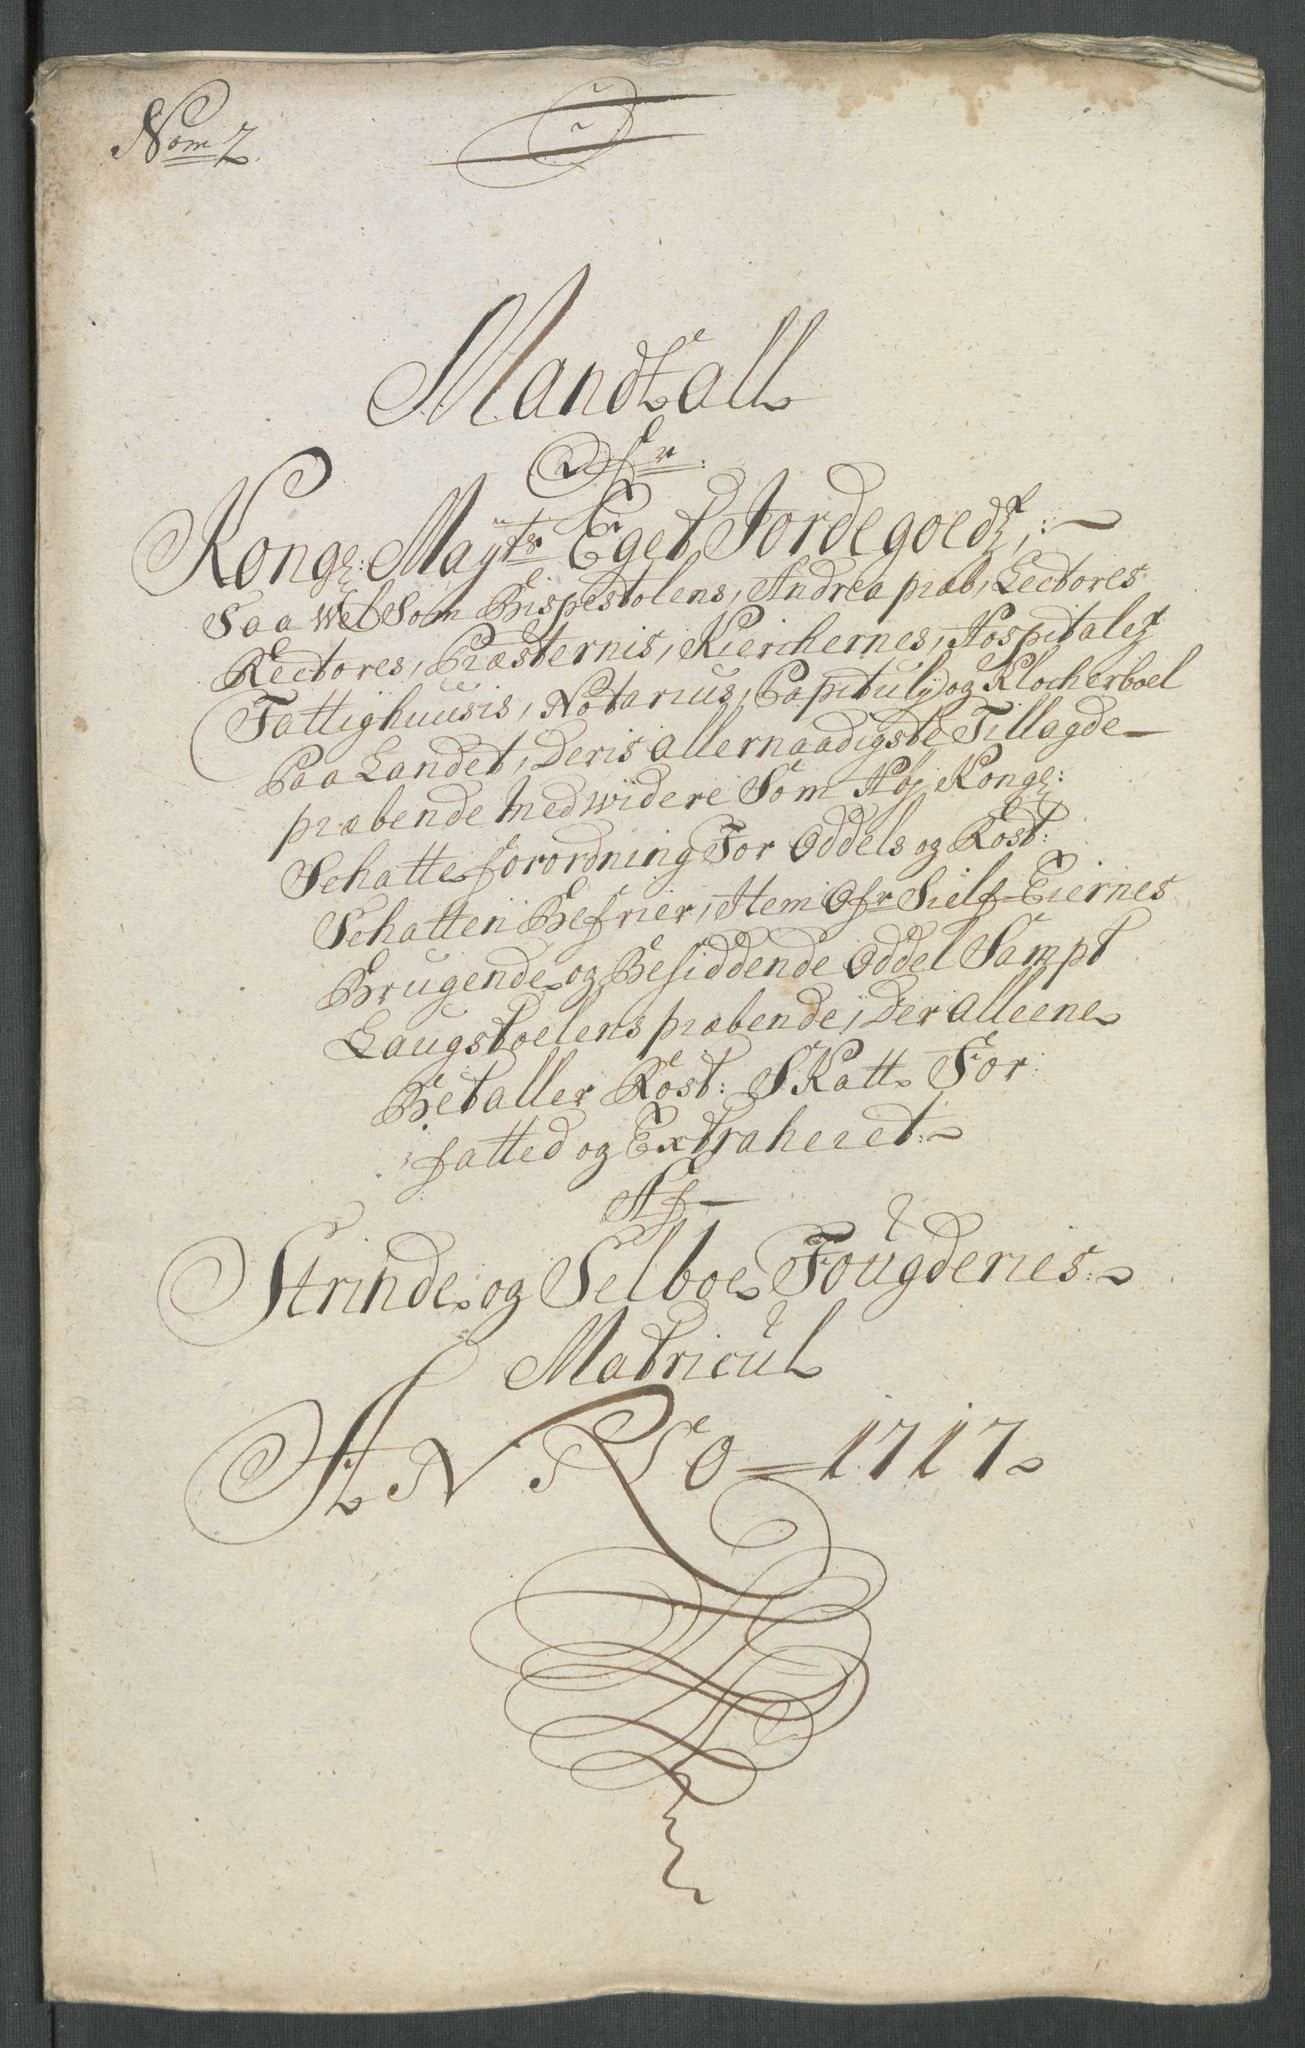 Nom 2.
Mandtall
Ofr:
Kongl: Mayts Eget Jordegoedz,:
Saa Vel Som Bispestolens, Andrea præb, Lectores
Rectores, Præsternis, Kierchernes, Hospitalez
Fattighuusis, Notarius, Capituly og Klocherboel
Paa Landet, Deris allernaadigste Tillagde
præbende Med widere Som Høj Kongl:
Schatte forordning For Oddels og Rost:
Schatten Befrier, Item Ofr Sielf Eiernes
Brugende og Besiddende Oddel Sampt
Laugstoelens præbende, Der alleene
Betaller Rost: Skatt For:
fatted og Extraheret:
Af
Strinde og Selboe Fougderies:
Matricul
ANNO 1717